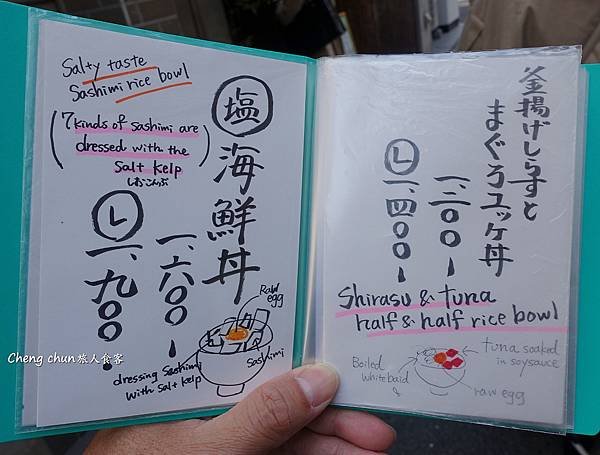 Salty taste
Sashimi rice bowl
(7 kinds of sashimi are
dressed with the
salt kelp)
しおこんぶ
塩海鮮丼
一、六〇〇-
L
一、九〇〇-
Raw
egg
Sashimi
dressing Sashimi
with salt kelp
釜揚げしらすと
まぐろユッケ丼
一、二〇〇-
L
一、四〇〇-
Shirasu & tuna
half & half rice bowl
Boiled
whitebaid
tuna soaked
in soysauce
raw egg
Cheng chun旅人食客